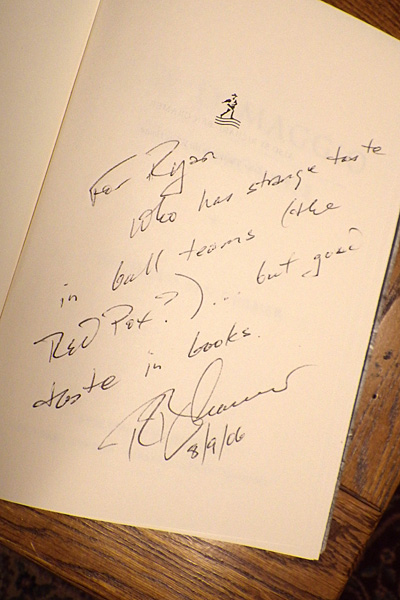 For Ryan
who has strange taste
in ball teams (the
Red Pox?)... but good
taste in books.
8/9/06